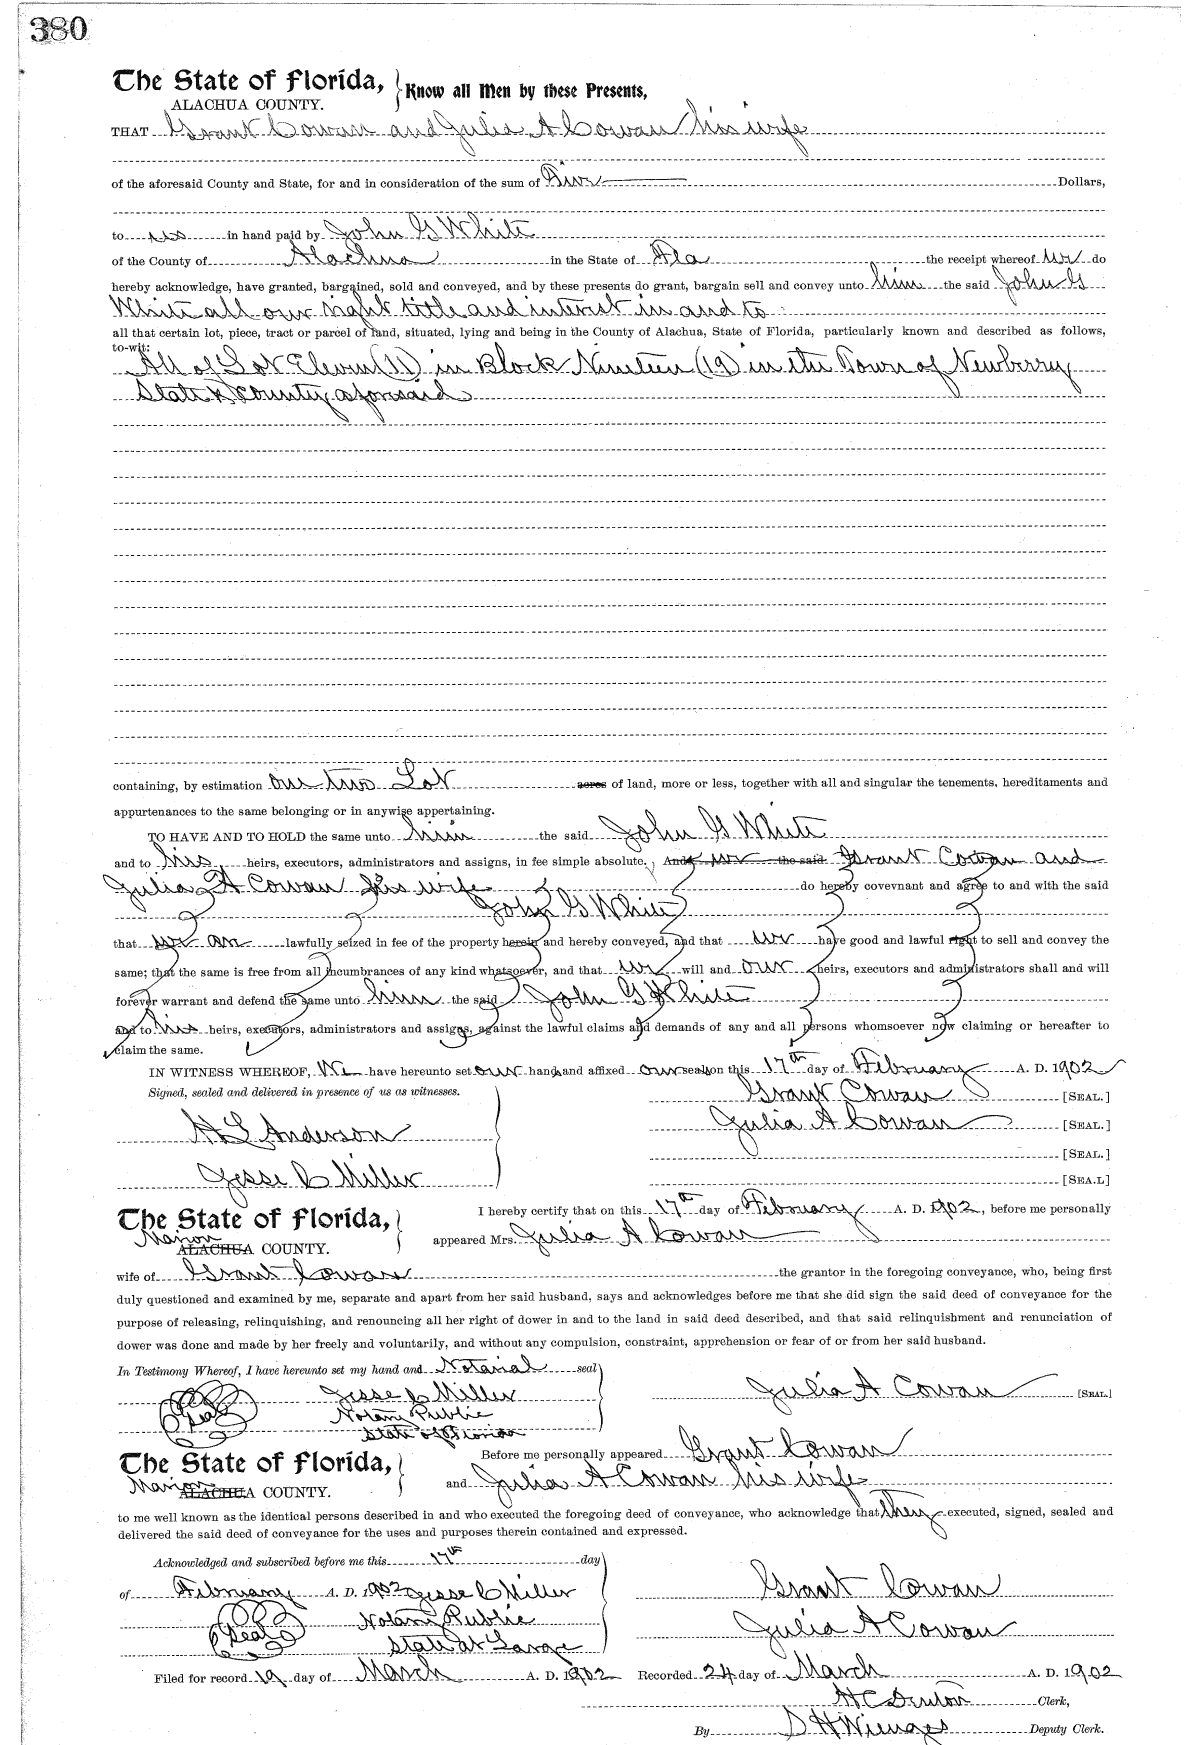 380
The State of Florida, Know all Men by these Presents,
ALACHUA COUNTY.
THAT Grant Cowan and Julia A Cowan his wife
of the aforesaid County and State, for and in consideration of the sum of Five Dollars,
to us in hand paid by John G White
of the County of Alachua in the State of Fla the receipt whereof we do
hereby acknowledge, have granted, bargained, sold and conveyed, and by these presents do grant, bargain sell and convey unto him the said John G
White all our right title and interest in and to
all that certain lot, piece, tract or parcel of land, situated, lying and being in the County of Alachua, State of Florida, particularly known and described as follows,
to-wit:
All of Lot Eleven (11) in Block Nineteen (19) in the Town of Newberry
State & County aforsaid
containing, by estimation Lot acres of land, more or less, together with all and singular the tenements, hereditaments and
appurtenances to the same belonging or in anywise appertaining.
TO HAVE AND TO HOLD the same unto him the said John G White
and to his heirs, executors, administrators and assigns, in fee simple absolute. And we the said Grant Cowan and
Julia A Cowan his wife do hereby covevnant and agree to and with the said
John G White
that we are lawfully seized in fee of the property herein and hereby conveyed, and that we have good and lawful right to sell and convey the
same; that the same is free from all incumbrances of any kind whatsoever, and that we will and our heirs, executors and administrators shall and will
forever warrant and defend the same unto him the said John G White
and to his heirs, executors, administrators and assigns, against the lawful claims and demands of any and all persons whomsoever now claiming or hereafter to
claim the same.
IN WITNESS WHEREOF, We have hereunto set our hands and affixed our seals on this 17th day of February A. D. 1902
Signed, sealed and delivered in presence of us as witnesses. Grant Cowan [SEAL.]
H L Anderson Julia A Cowan [SEAL.]
[SEAL.]
Jesse C Miller [SEA.L]
The State of Florida, I hereby certify that on this 17th day of February A. D. 1902, before me personally
Marion ALACHUA COUNTY. appeared Mrs. Julia A Cowan
wife of Grant Cowan the grantor in the foregoing conveyance, who, being first
duly questioned and examined by me, separate and apart from her said husband, says and acknowledges before me that she did sign the said deed of conveyance for the
purpose of releasing, relinquishing, and renouncing all her right of dower in and to the land in said deed described, and that said relinquishment and renunciation of
dower was done and made by her freely and voluntarily, and without any compulsion, constraint, apprehension or fear of or from her said husband.
In Testimony Whereof, I have hereunto set my hand and Notarial seal
Seal Jesse C Miller Julia A Cowan [SEAL.]
Notary Public
State of Florida
The State of Florida, Before me personally appeared Grant Cowan
Marion ALACHUA COUNTY. and Julia A Cowan his wife
to me well known as the identical persons described in and who executed the foregoing deed of conveyance, who acknowledge that they executed, signed, sealed and
delivered the said deed of conveyance for the uses and purposes therein contained and expressed.
Acknowledged and subscribed before me this 17th day
of February A. D. 1902 Jesse C Miller Grant Cowan
Seal Notary Public Julia A Cowan
State at Large
Filed for record 19 day of March A. D. 1902 Recorded 24 day of March A. D. 1902
H C Denton Clerk,
By S H Wienges Deputy Clerk.